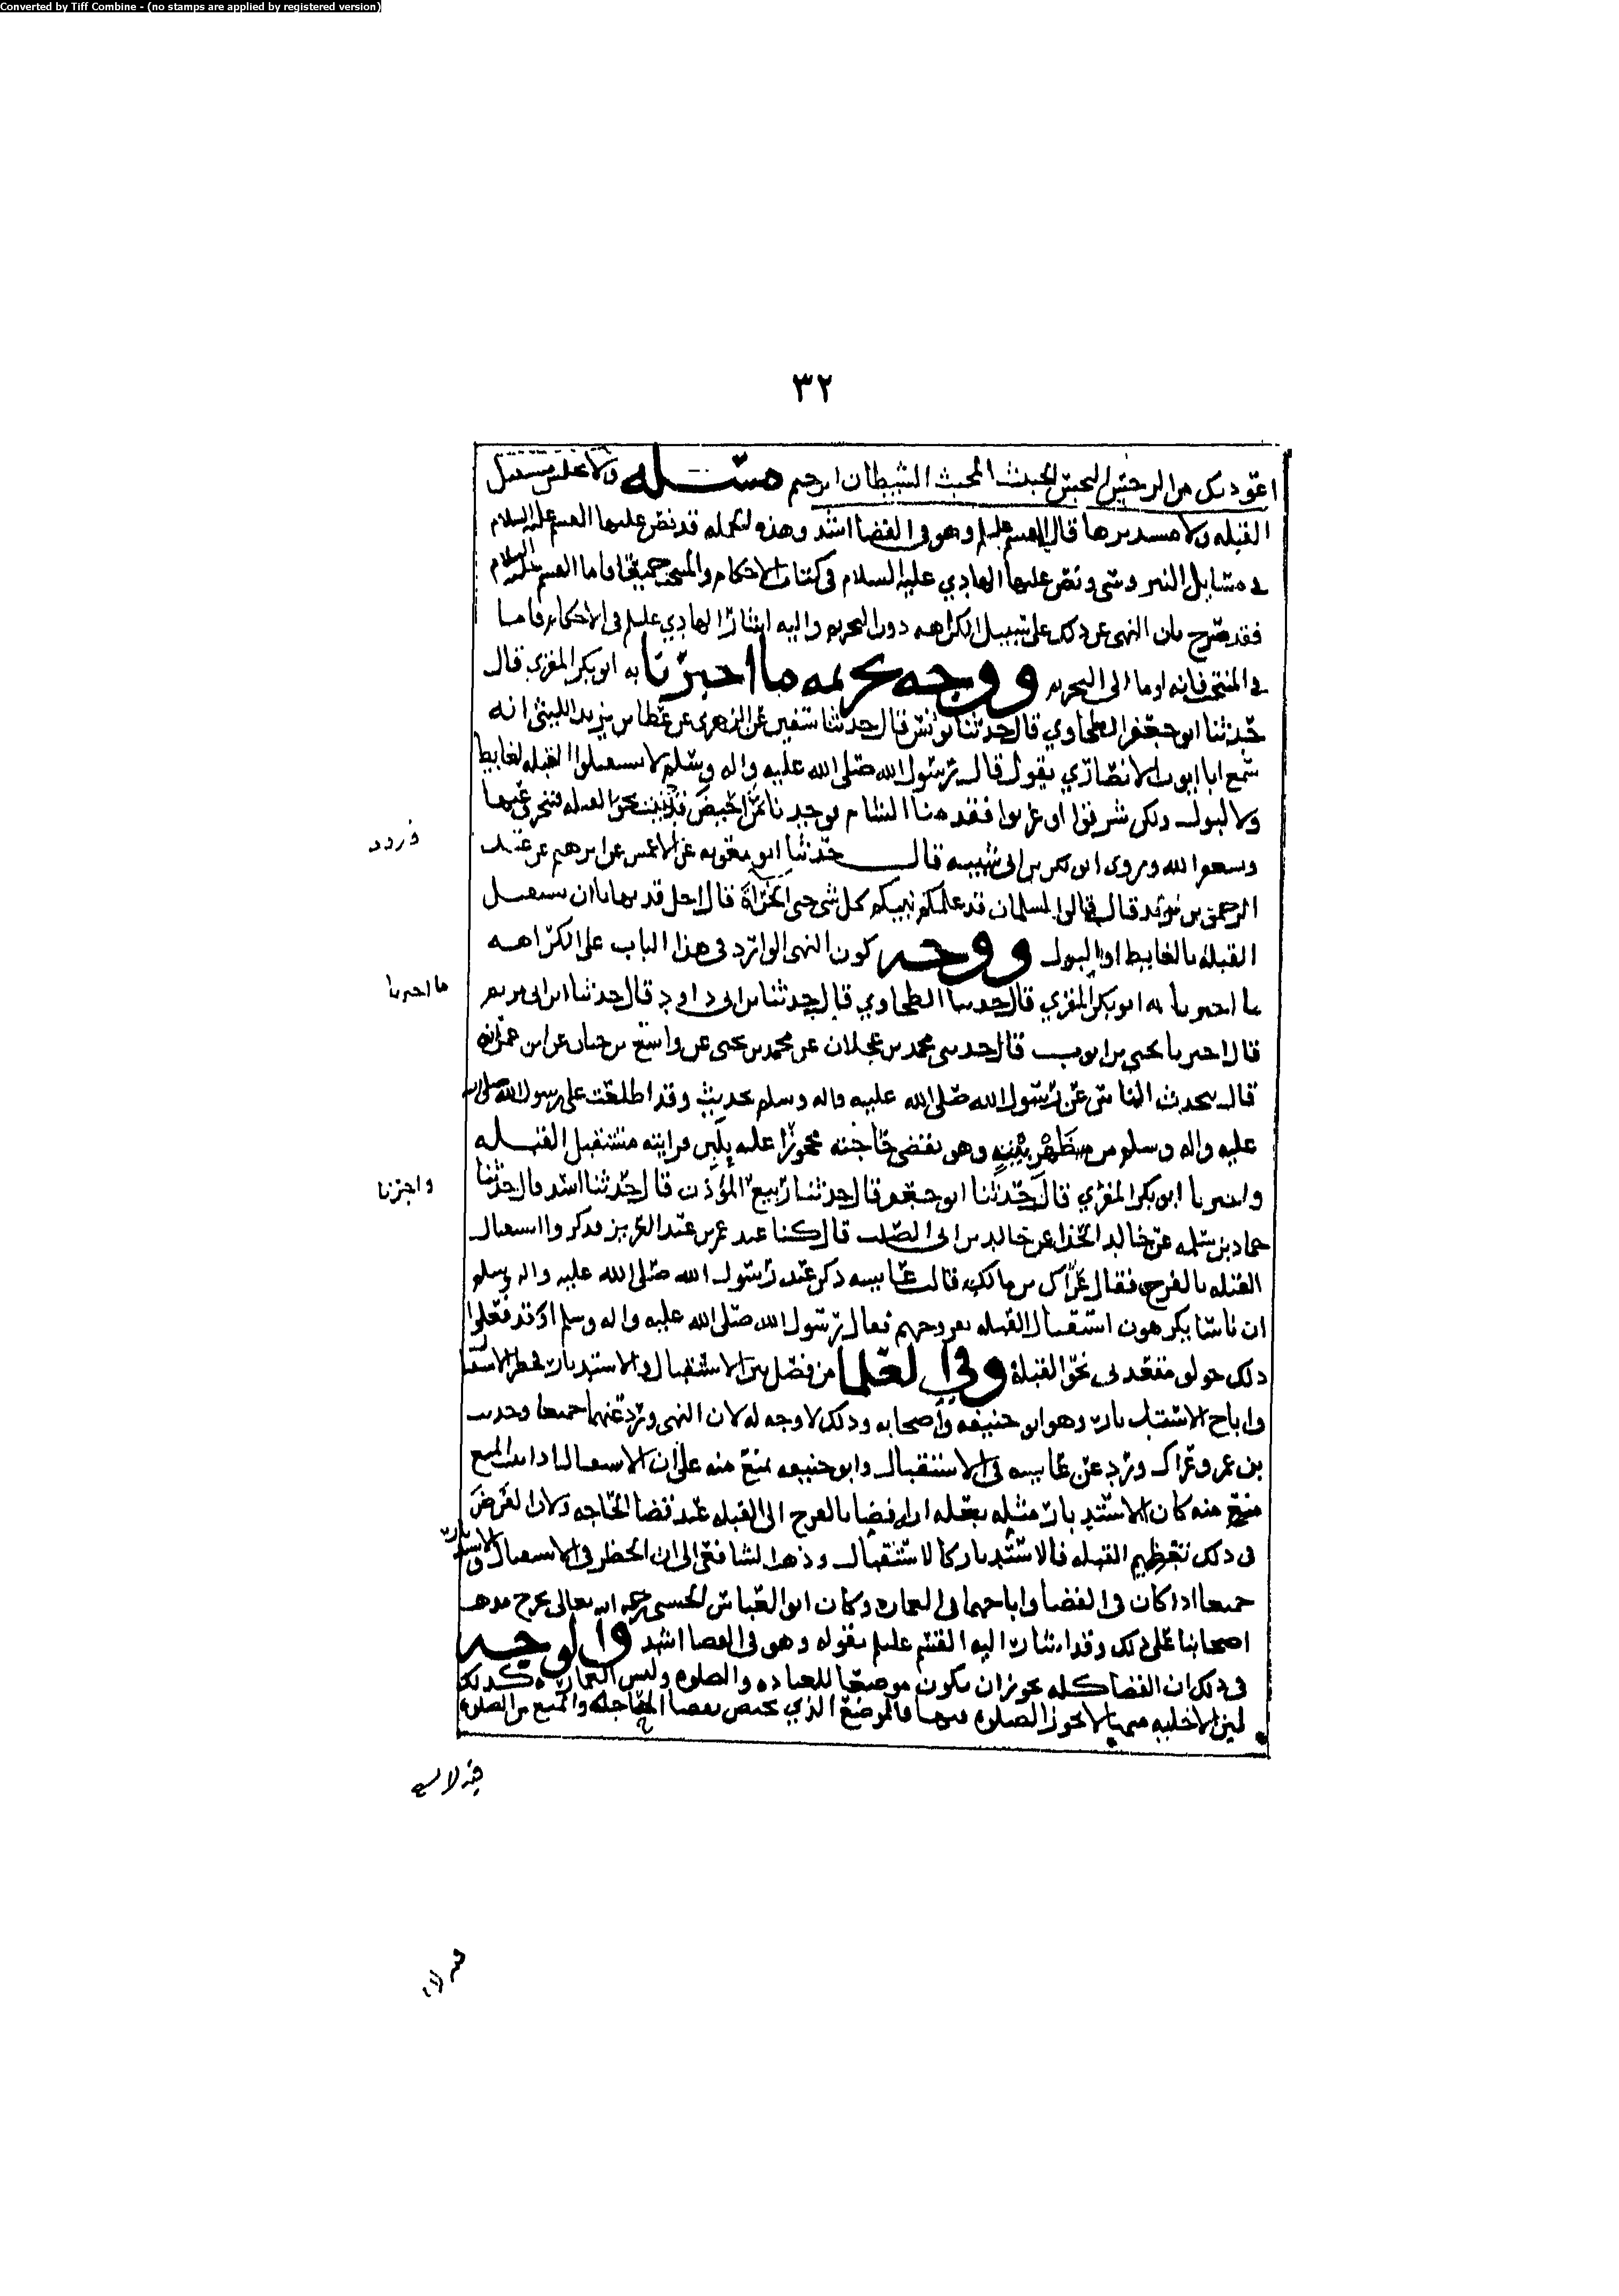 Converted by Tiff Combine - (no stamps are applied by registered version)
٣٢
اعوذ بك من الرجس النجس الخبيث المخبث الشيطان الرجيم مسئله ولا يجلس مستقبل
القبله ولا مستدبرها قال القسم عليلم وهو في الفضا اشد وهذه الجمله قد نص عليها القسم عليه السلام
في مسايل النيروسي ونص عليها الهادي عليه السلام في كتاب الاحكام والمنتخب جميعا فاما القسم عليه السلام
فقد صرح بان النهي عن ذلك على سبيل الكراهه دون التحريم واليه اشار الهادي عليلم في الاحكام فاما
في المنتخب فانه اوما الى التحريم ووجه تحريمه ما اخبرنا به ابو بكر المقري قال
حدثنا ابو جعفر الطحاوي قال حدثنا يونس قال حدثنا سفين عن الزهري عن عطا بن يزيد الليثي انه
سمع ابا ايوب الانصاري يقول قال رسول الله صلى الله عليه واله وسلم لا تستقبلوا القبله لغايط
ولا لبول ولكن شرقوا او غربوا فقدمنا الشام فوجدنا مراحيض قد بنيت نحو القبله فننحرف عنها
ونستغفر الله وروى ابو بكر بن ابي شيبه قال حدثنا ابو معويه عن الاعمش عن ابرهيم عن عبد
فردد
الرحمن بن يزيد قال قالوا لسلمان قد علمكم نبيكم كل شي حتى الخراة قال اجل قد نهانا ان نستقبل
القبله بالغايط او البول ووجه كون النهي الوارد في هذا الباب على الكراهه
ما اخبرنا به ابو بكر المقري قال حدثنا الطحاوي قال حدثنا بن ابي داود قال حدثنا ابن ابي مريم
ما اخبرنا
قال اخبرنا يحيى بن ايوب قال حدثني محمد بن عجلان عن محمد بن يحيى عن واسع بن حبان عن ابن عمر انه
قال يحدث الناس عن رسول الله صلى الله عليه واله وسلم بحديث وقد اطلعت على رسول الله صلى الله
عليه واله وسلم من ظهر بيت وهو يقضي حاجته محجوزا عليه بلبن فرايته مستقبل القبله
واخبرنا ابو بكر المقري قال حدثنا ابو جعفر قال حدثنا ربيع المؤذن قال حدثنا اسد قال حدثنا
واخبرنا
حماد بن سلمه عن خالد الحذا عن خالد بن ابي الصلت قال كنا عند عمر بن عبد العزيز فذكروا استقبال
القبله بالفرج فقال عراك بن مالك قالت عايشه ذكر عند رسول الله صلى الله عليه واله وسلم
ان ناسا يكرهون استقبال القبله بفروجهم فقال رسول الله صلى الله عليه واله وسلم اوقد فعلوا
ذلك حولوا مقعدتي نحو القبلة وفي العلما من فصل بين الاستقبال والاستدبار فحظر الاستقبال
واباح الاستدبار وهو ابو حنيفه واصحابه وذلك لا وجه له لان النهي ورد عنهما جميعا وحديث
بن عمر وعراك ورد عن عايشه في الاستقبال وابو حنيفه يمنع منه على ان الاستقبال اذا ثبت المنع
منع منه كان الاستدبار مثله بعله انه افضا بالفرج الى القبله عند قضا الحاجه ولان الغرض
في ذلك تعظيم القبله فالاستدبار كالاستقبال وذهب الشافعي الى ان الحظر في الاستقبال والاستدبار
جميعا اذا كان في الفضا واباحهما في العماره وكان ابو العباس الحسني رحمه الله تعالى يخرج مذهب
اصحابنا على ذلك وقد اشار اليه القسم عليلم بقوله وهو في الفضا اشد والوجه
في ذلك ان الفضا كله يجوز ان يكون موضعا للعباده والصلوه وليس العماره كذلك
لان الاخليه مبنيه لا تجوز الصلوه فيها فالموضع الذي يختص بقضا الحاجه والمنع من الصلوه